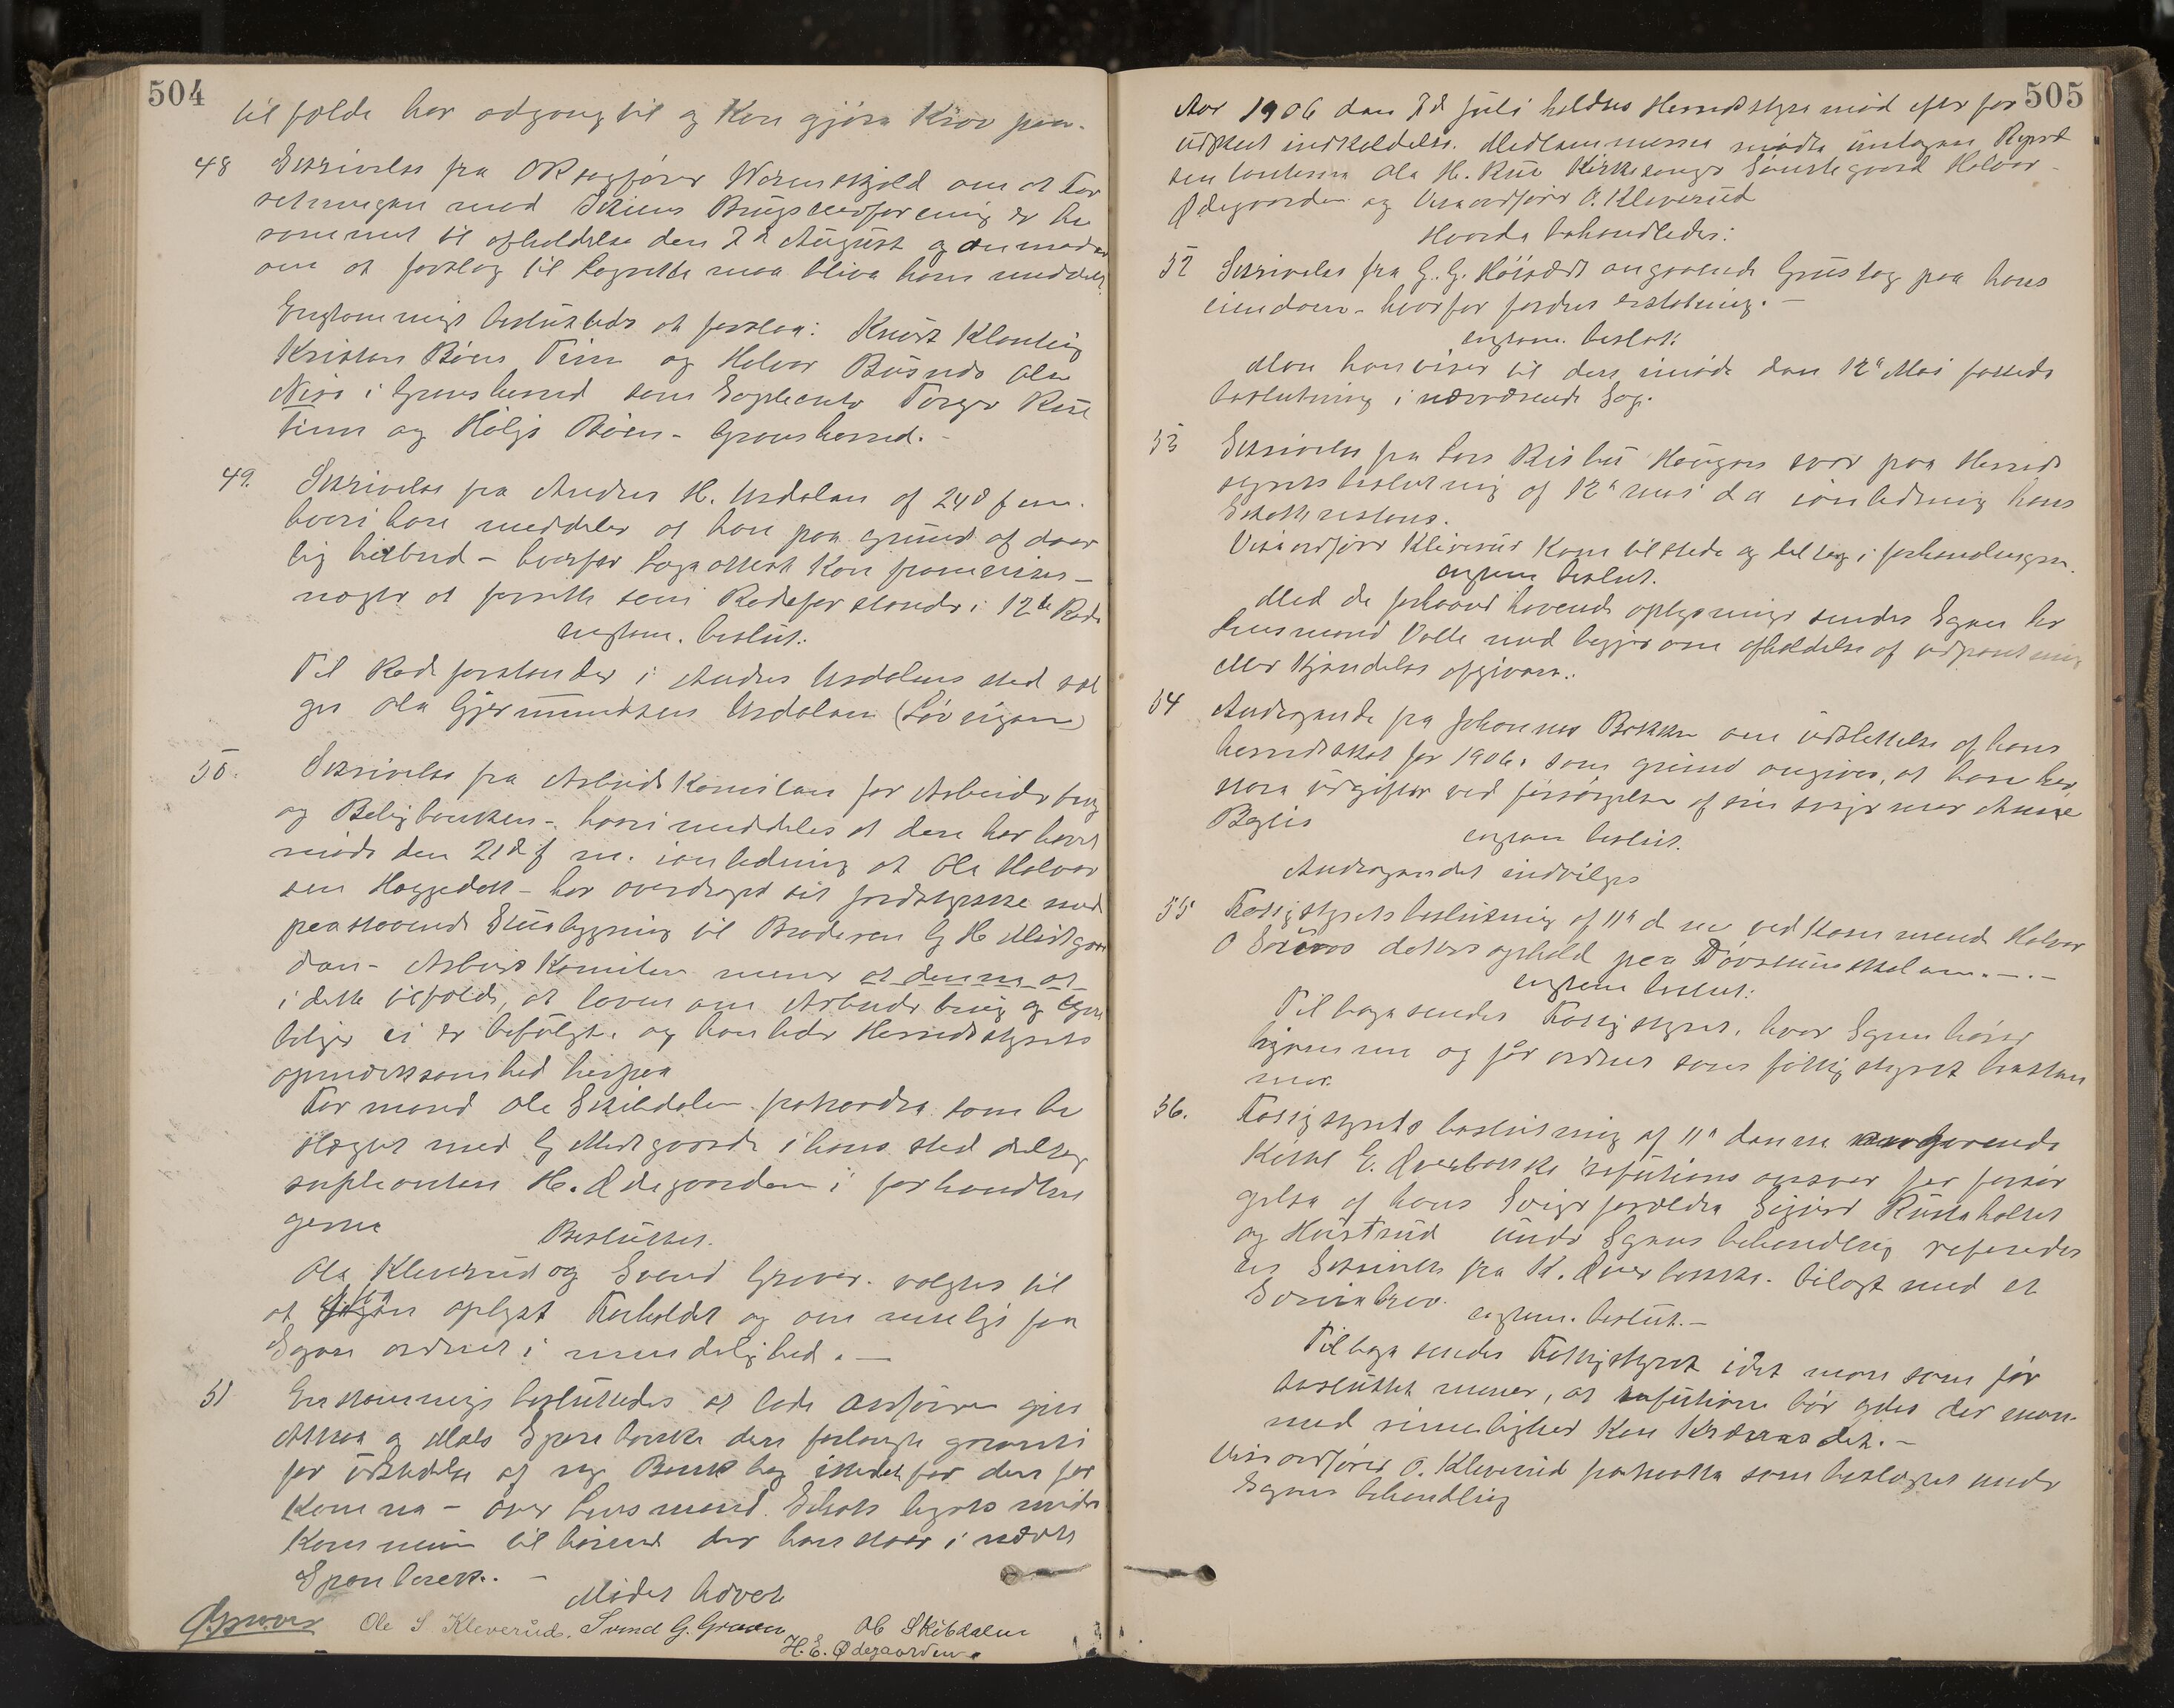 504
til fælde har adgang til og kan gjøre Krav paa.
48 Skrivelse fra OR sagfører Wærenskjold om at For
retningen med Skiens Brugseierforening er be
rammet til afholdelse den 2d August og anmoder
om at forslag til Lagrette maa blive ham meddelt.
Enstemmigt besluttedes at foreslaa: Knut
Kristen Bøen Tinn og Halvor Busnes Ole
i Gransherred som Suplianter Torger Rue
Tinn og Høljo Bøen - Gransherred. -
49. Skrivelse fra Anders H. Usdalen af 24d f m.
hvori han meddeler at han paa grund af daar
lig helbred - hvorfor Lægeattest kan fremvises -
nægter at fortsette som Rodeforstander i 12te Rode
enstem. beslut:
Til Rodeforstander i Anders Usdalens sted væl
ges Ola Gjermundsen Usdalen
50. Skrivelse fra Arbeidskomiteen for Arbeiderbrug
og Boligbanken - hvori meddeles at den har havt
møde den 21d f m. i anledning at Ole Halvor
sen Haggedok - har overdraget sit jordstykke med
paastaaende Stuebygning til Broderen G H Midtgaar
den - Arbeidskomiteen mener at denne at
i dette tilfælde, at loven om Arbeiderbrug og
bolger ei er befulgt. og henleder Herredsstyrets
opmerksomhed herpaa
Formand Ole Skibdalen fratraadte som be
slægtet med G Midtgaarde i hans sted deltog
suplianten H. Ødegaarden i forhandlin
gerne
Besluttes.
Ola Kleverud og Svend Graver. valgtes til
at faa oplyst Forholdet og om muligt faa
Sagen ordnet i mindelighed. -
51 Enstemmigt besluttedes at lade Ordføren give
Atraa og Mæls Sparebanke den forlangte garanti
for udstedelse af ny Bankbog istedetfor den for
komne - over Lensmand Schots legats midler
Kommunen tilhørende der henstaar i nævnte
Sparebank. -
Mødet hævet
Ole S Kleverud. Svend G. Graver Ole Skibdalen
H. E. Ødegaarden.
505
Aar 1906 den 7d Juli holdtes Herredsstyremød efter for
udskeet indkaldelse. Medlemmerne mødte undtagen Repræ
sentanterne Ola H. Rue Kirkesanger Sønstegaard Halvor
Ødegaarden og Viseordfører O. Kleverud
Hvorda behandledes:
52 Skrivelse fra G. G. angaaende Grustag paa hans
eiendom - hvorfor fordres erstatning. -
enstem. beslut:
Man henviser til den i møde den 12d Mai fattede
beslutning i nærværende Sag.
53 Skrivelse fra Lars Risbu Haugen svar paa Herreds
styrets beslutning af 12d mai d a i anledning hans
Skatterestans.
Viseordfører Kleverud kom tilstede og deltog i forhandlingen.
enstem beslut.
Med de forhaand havende oplysninger sendes Sagen hr
Lensmand Volle med begjær om afholdelse af udpantning
eller Kjendelse afgivere.
54 Andragende fra Johannes Bakken om udslettelse af hans
herredsskat for 1906. som grund angives, at han har
store udgifter ved forsørgelse af sin svigermor Anne
Bøglis
enstem beslut.
Andragendet indvilges
55 Fattigstyrets beslutning af 11d d m vedkommende Halvor
O datters ophold paa Døvstumeskolen. -.-
enstem beslut:
Tilbagesendes Fattigstyret, hvor Sagen hører
hjemme og får ordnes som fattigstyret bestem
mer.
56. Fattigstyrets beslutning af 11d denne angaaende
Kittel E. Øverbakkes refutions ansvar for forsør
gelse af hans Svigerforældre Sigurd Rustaholtet
og Hustrud under Sagens behandling refererdes
en Skrivelse fra K. Øverbakke. bilagt med et
Svarbrev.
enstem. beslut. -
Tilbagesendes Fattigstyret idet man som før
besluttet mener, at refution bør ydes der man
med rimelighed kan kræves det. -
Viseordfører O. Kleverud fratraadte som beslægtet under
Sagens behandling